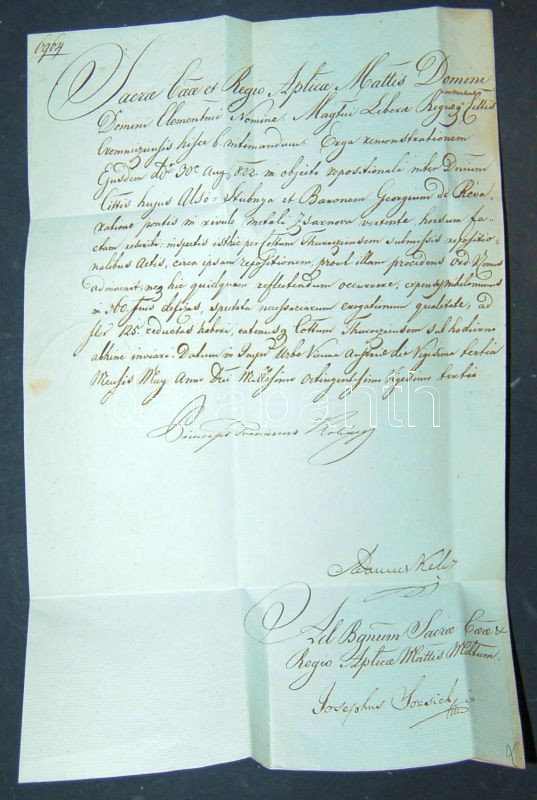 6964
Sacrae Caeae et Regio Aplicae Mattis Domini
Domini Clementmi Nomine. Magtui Liberae Regiaeq Cittis
Cremniziensis hisce intimandum: Erga remonstrationem
Ejusdem dto 30a Aug 822. in objecto repositionali inter Dnium
Cittis hujus Alsó-Stubnya et Baronem Georgium de Réva,
ratione pontis in rivulo, metali Zsarnova vertente horsum fac-
tam rescribi: inspectis isthic per Cottum Thurocziensem submissis reposition-
nalibus Actis, circa ipsam repositionem, prout illam procedens Ord.
admovit, neq hic quidquam reflectendum occurrere, expensas nihilominus
in 360. fnis defixas, spectata necessariarum erogationum qualitate, ad
flor 125. reductas haberi, eatenusq Cottum Thurocziensem sub hodierno
abhinc inviari. Datum in Imperi Urbe Vienna Austriae die Vigesima tertia
Mensis May Anno Dni Millesimo Octingentesimo Vigesimo tertio
Princeps Franciscus
Adamus
Ad Bgnum Sacrae Caeae &
Regio Aplicae Mattis Mdtum.
Josephus